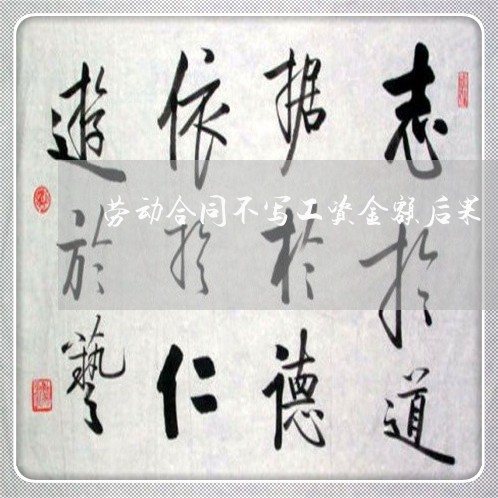 志於道
据於德
依於仁
遊於藝
劳动合同不写工资金额后果